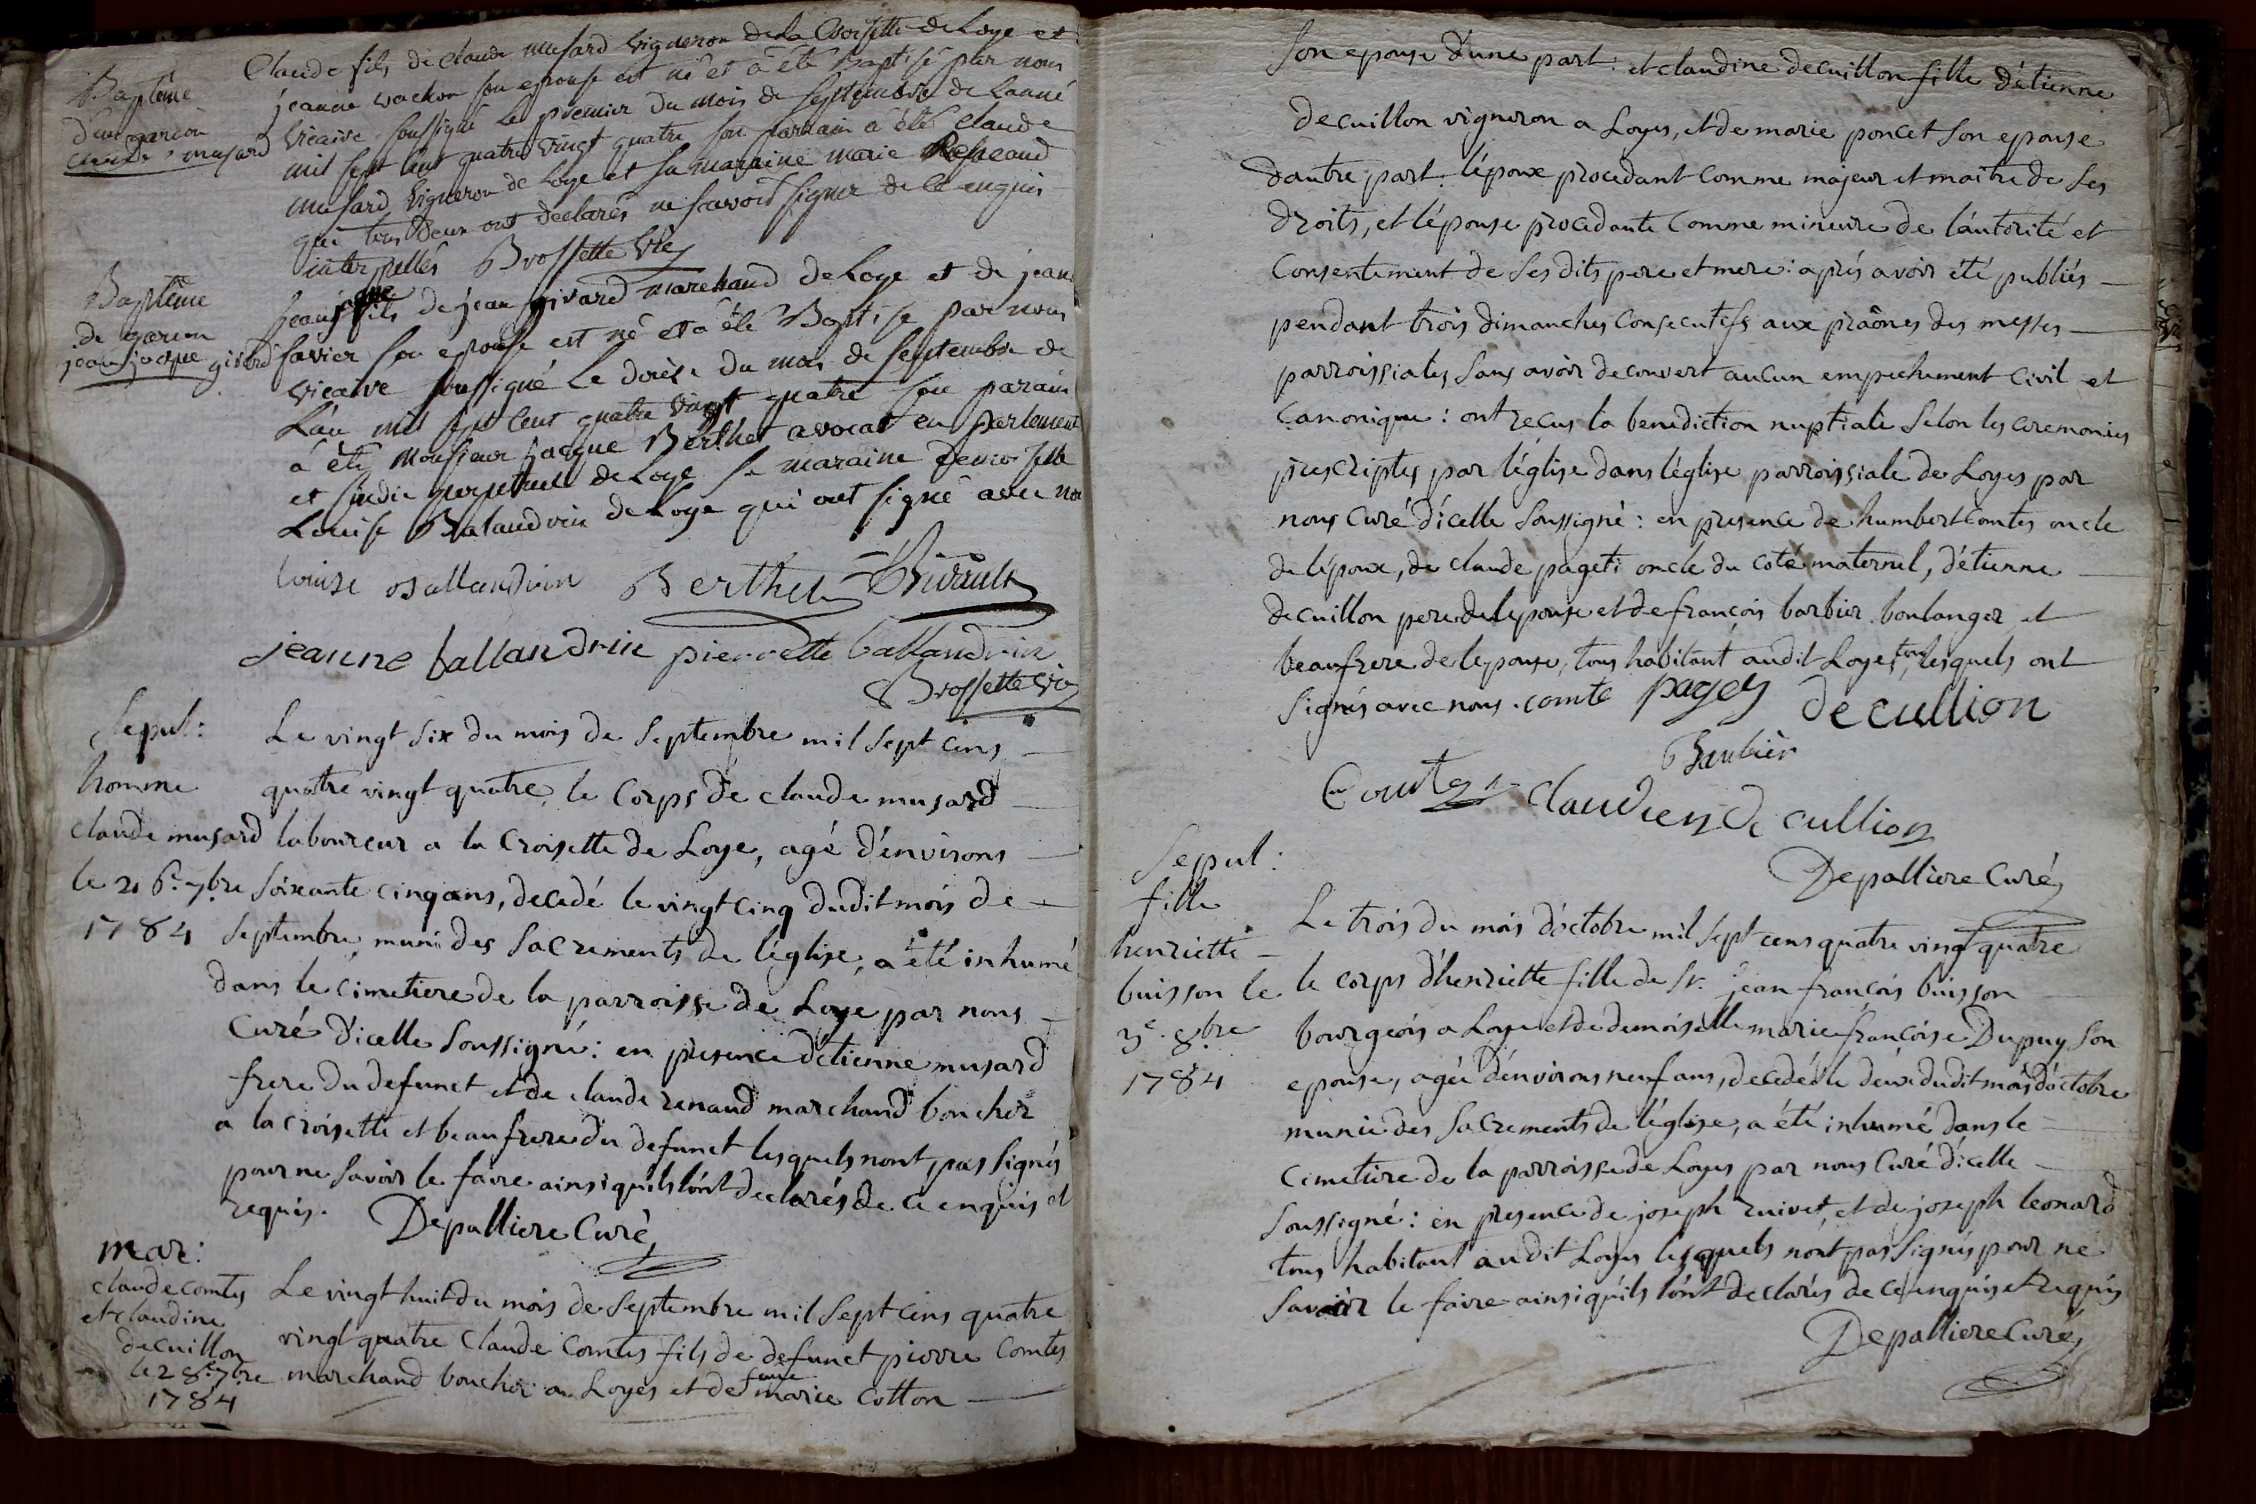 Baptême
d'un garcon
claude musard
Claude fils de claude musard vigneron de la Croisette de Loye et
jeanne vachon son epouse est né et à été Baptisé par nous
vicaire soussigné le premier du mois de septembre de Lanné
mil sept cent quatre vingt quatre son parrain à été claude
musard vigneron de Loye et sa maraine marie
qui tous deux ont declarés ne savoir signer de ce enquis
interpellés Brossette vic
Baptême
de garcon
jean jacque givard
jean jaque fils de jean givard marchand de Loye et de jeanne
favier son epouse est né et à été Baptisé par nous
vicaire soussigné le du mois de septembre de
L'an mil sept cent quatre vingt quatre son parain
à été Monsieur jacque Berthet avocat en parlement
et sindic perpetuel de Loye sa maraine demoiselle
Louise Balandrin de Loye qui ont signé avec nous
louise Ballandrin Berthet
jeanne ballandrin pierrette ballandrin
Brossette vic
Sepul:
homme
claude musard
le 26e 7bre
1784
Le vingt six du mois de septembre mil sept cens
quatre vingt quatre, le corps de claude musard
laboureur a la Croisette de Loye, agé d'environs
soixante cinq ans, decedé le vingt cinq dudit mois de
septembre, muni des sacrements de l'église, a été inhumé
dans le cimetiere de la parroisse de Loye par nous
Curé d'icelle soussigné: en presence d'etienne musard
frere du defunct et de claude renaud marchand boucher
a la croisette et beaufrere du defunct lesquels nont pas signés
pour ne savoir le faire ainsi quils l'ont declarés de ce enquis et
requis. Depalliere Curé
mar:
claude comtes
et claudine
decuillon
le 28e 7bre
1784
Le vingt huit du mois de septembre mil sept cens quatre
vingt quatre Claude Comtes fils de defunct pierre Comtes
marchand boucher a Loyes et de feue marie Cotton
son epouse d'une part. et claudine decuillon fille d'étienne
decuillon vigneron a Loyes, et de marie poncet son epouse
dautre part. l'époux procedant comme majeur et maitre de ses
droits, et l'épouse procedante comme mineure de l'autorité et
consentement de ses dits pere et mere: aprés avoir été publiés
pendant trois dimanches consecutifs aux prônes des messes
parroissiales sans avoir decouvert aucun empechement civil et
canonique: ont recus la benediction nuptiale selon les ceremonies
prescriptes par l'église dans l'église parroissiale de Loyes par
nous Curé d'icelle soussigné: en presence de humbert comtes oncle
de l'époux, de claude paget: oncle du coté maternel, d'étienne
decuillon pere de lepouse et de francois barbier boulanger et
beaufrere de lepouse, tous habitant audit Loyes, tous lesquels ont
signés avec nous. comte paget decullion
Barbier
Comtes claudien de cullion
Depalliere Curé
Sepul:
fille
henriette
buisson le
3e 8bre
1784
Le trois du mois d'octobre mil sept cens quatre vingt quatre
le corps d'henriette fille de Sr. jean francois buisson
bourgeois a Loye et de demoiselle marie francoise Dupuy son
epouse, agée d'environs neuf ans, decedée le deux dudit mois d'octobre
munie des sacrements de l'église, a été inhumé dans le
cimetiere de la parroisse de Loyes par nous Curé d'icelle
soussigné: en presence de joseph ruivet, et de joseph leonard
tous habitant audit Loyes lesquels nont pas signés pour ne
savoir le faire ainsi qu'ils l'ont declarés de ce enquis et requis
Depalliere Curé